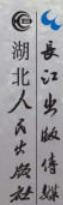 长江出版传媒
湖北人民出版社